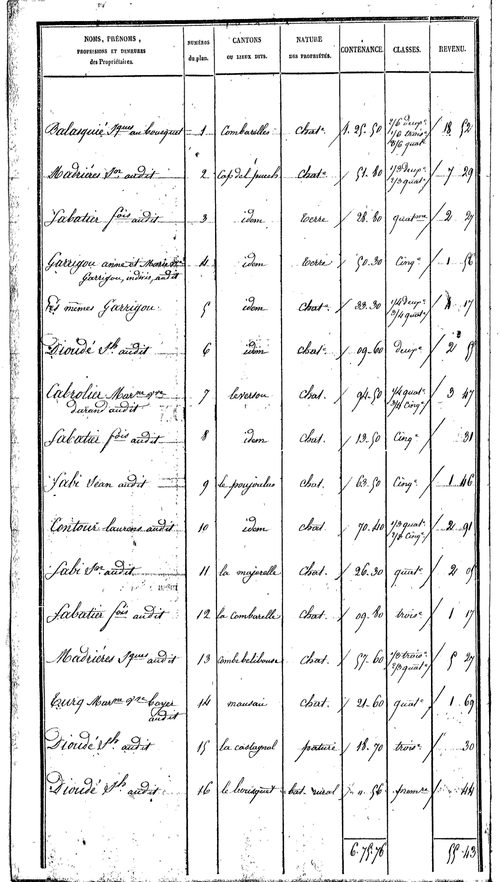 NOMS, PRÉNOMS, PROFESSIONS ET DEMEURES des Propriétaires. NUMÉROS du plan. CANTONS OU LIEUX DITS. NATURE DES PROPRIÉTÉS. CONTENANCE. CLASSES. REVENU.
Balasquié Jques au bousquet 1 Combarelles chat. 1. 25. 50 2/6 deux. 1/6 trois. 3/6 quat. 18 52
Madrières Jn audit 2 Cap del puech chat. 51. 80 1/3 deux. 2/3 quat. 7 29
Sabatier fois audit 3 idem terre 28. 80 quatme 2 27
Garrigou anne et Marie 4 idem terre 50. 30 Cinq. 1 56
Garrigou, indivis, audit
Les mêmes Garrigou 5 idem chat. 33. 30 1/4 deux. 3/4 quat. 4 17
Dioudé Jh audit 6 idem chat. 09. 60 deux. 2 55
Cabrolier Marne vve 7 leversou chat. 94. 50 1/4 quat. 3/4 cinq. 3 47
Durand audit
Sabatier fois audit 8 idem chat. 13. 50 Cinq. 31
Fabi Jean audit 9 le poujoulas chat. 63. 50 Cinq. 1 46
Contour laurens audit 10 idem chat. 70. 40 quat. cinq. 2 91
Fabi audit 11 la majorelle chat. 26. 30 quat. 2 05
Sabatier fois audit 12 la Combarelle chat. 09. 80 trois. 1 17
Madrières Jques audit 13 Combebelibouse chat. 57. 60 1/3 trois. 2/3 quat. 5 27
Turq Marne vve boyer 14 mausau chat. 21. 60 quat. 1 69
audit
Dioudé Jh audit 15 la castagnal pature 18. 70 trois. 30
Dioudé Jh audit 16 le bousquet bat. rural " 56 prem. 44
6. 75. 76 55. 43